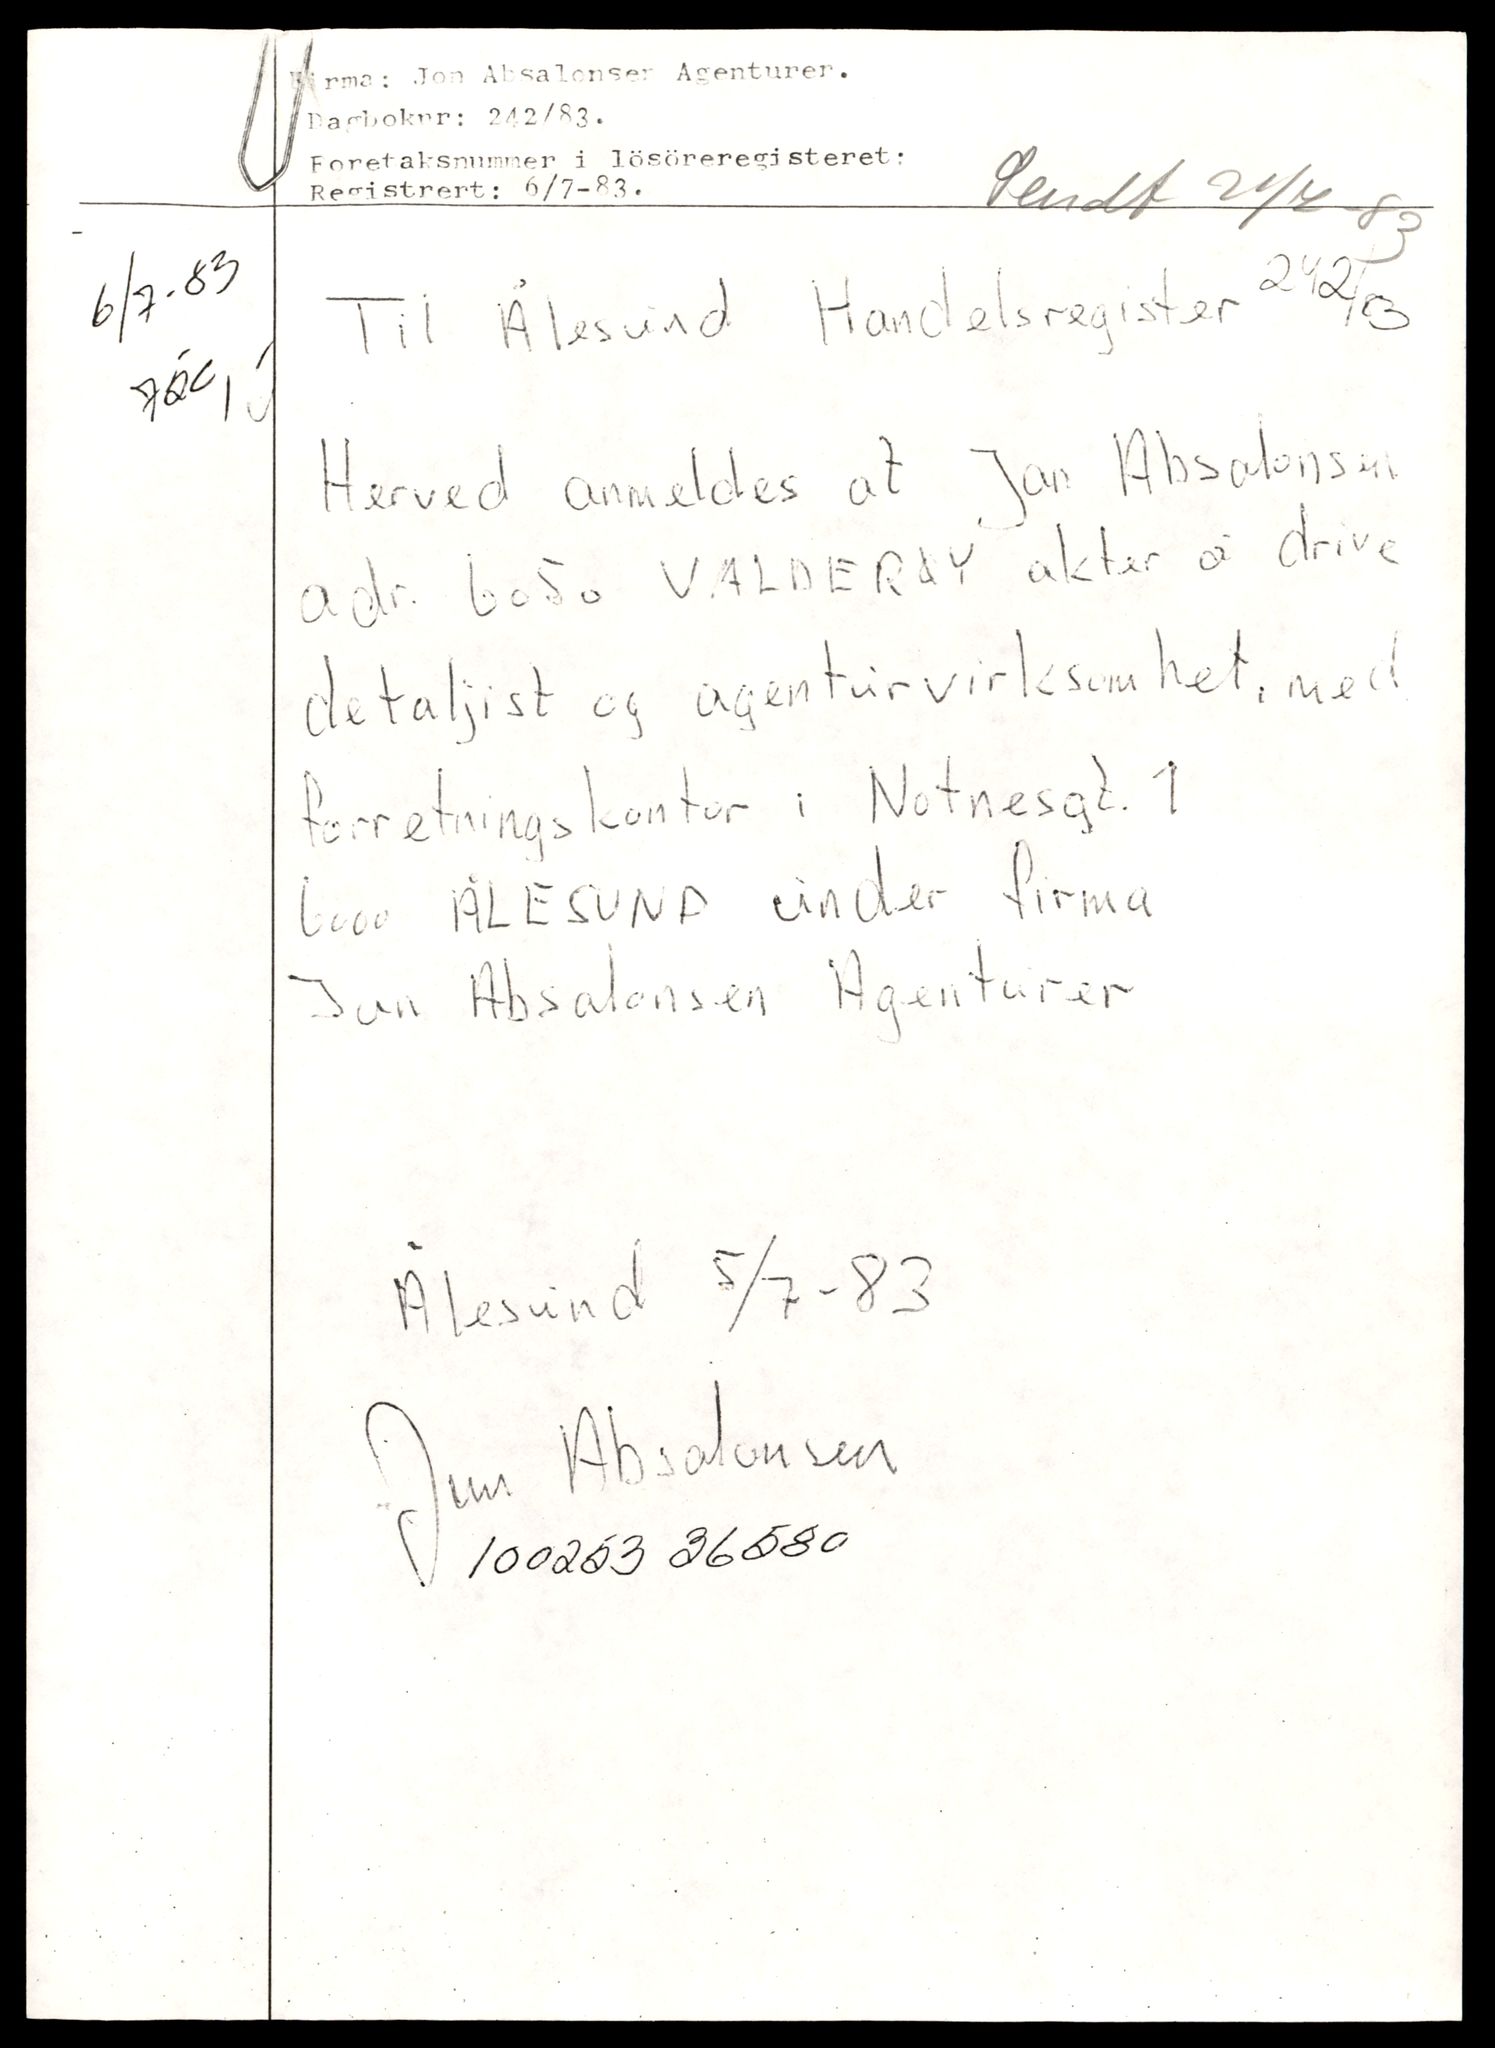 Firma: Jon Absalonsen Agenturer.
Dagboknr: 242/83.
Foretaksnummer i lösöreregisteret:
Registrert: 6/7-83.
Sendt 21/7-83
6/7-83
242/83
Til Ålesund Handelsregister
Herved anmeldes at Jan Absalonsen
adr. 6050 VALDERØY akter å drive
detaljist og agenturvirksomhet, med
forretningskontor i Notnesgt. 1
6000 ÅLESUND under firma
Jan Absalonsen Agenturer
Ålesund 5/7-83
Jan Absalonsen
100253 36580